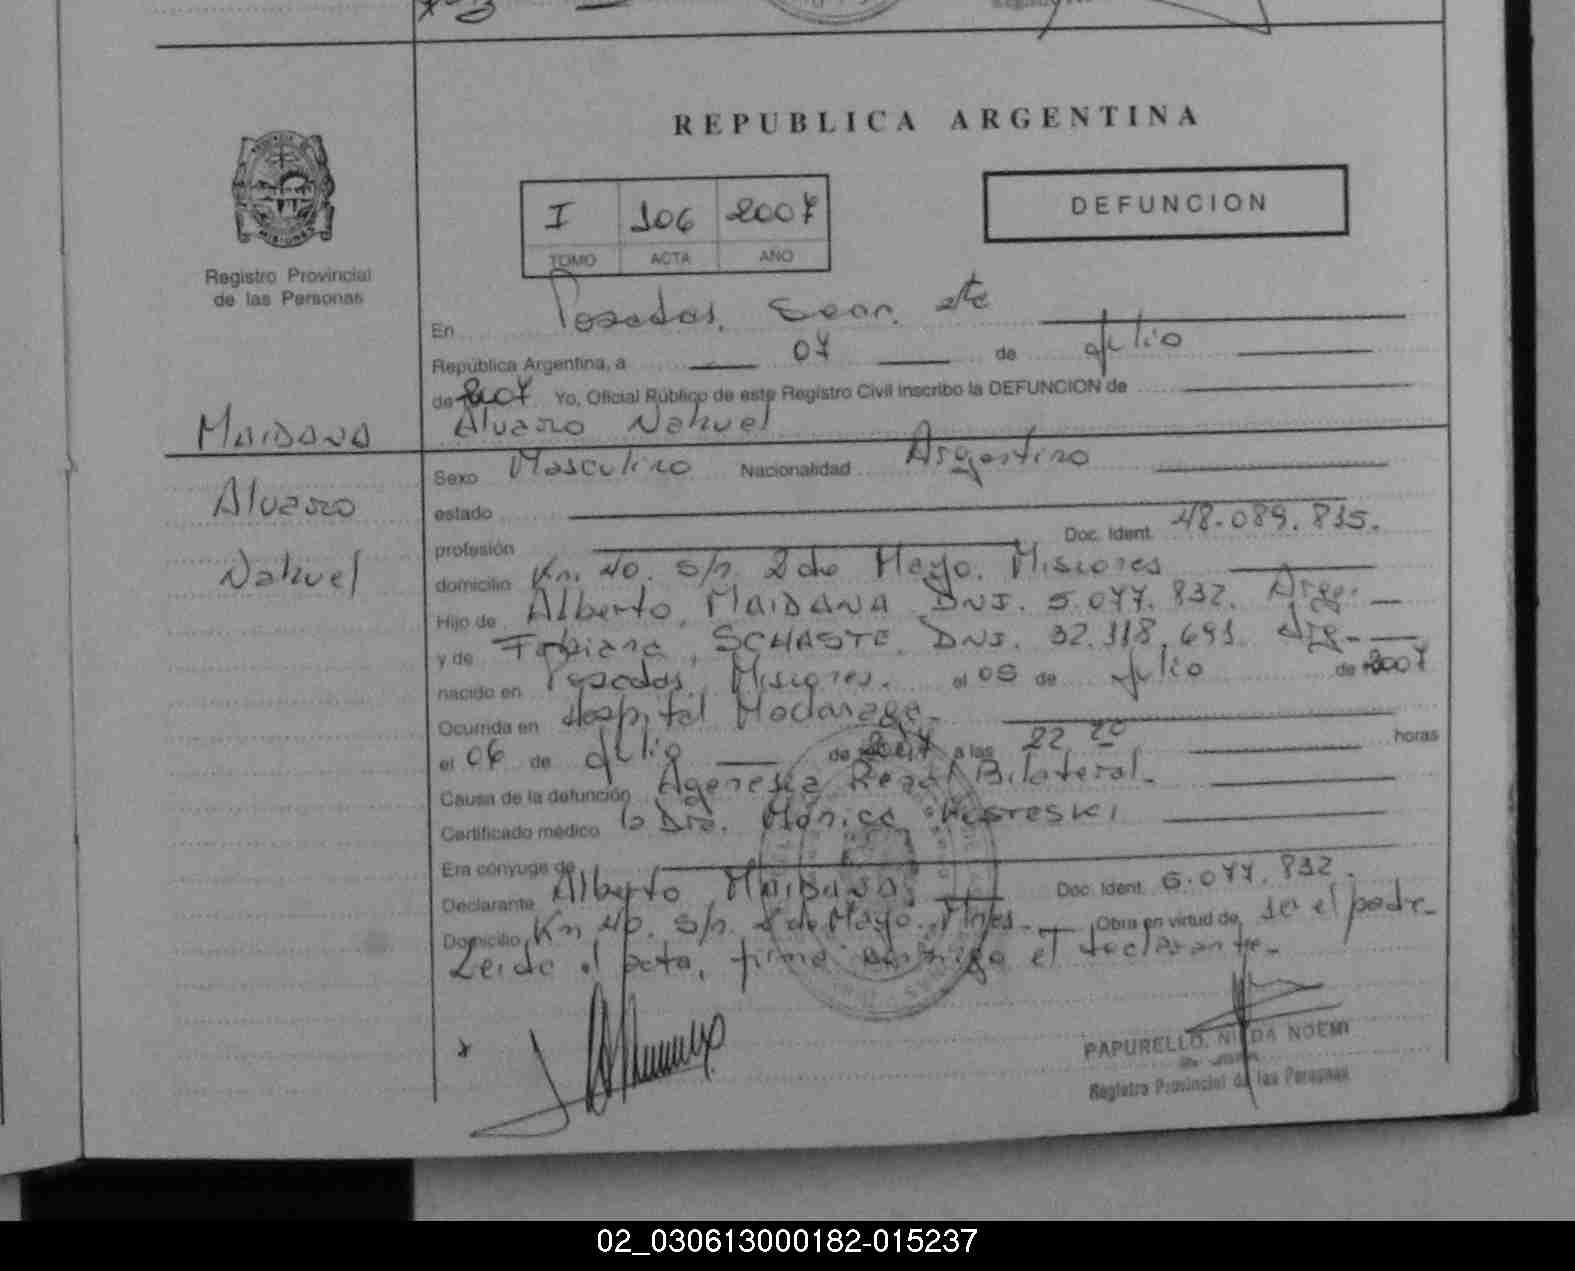 REPUBLICA ARGENTINA
I 106 2007
TOMO ACTA AÑO
DEFUNCION
Registro Provincial
de las Personas
En Posadas, sec.
República Argentina, a 07 de Julio
de 2007 Yo, Oficial Público de este Registro Civil inscribo la DEFUNCION de
MAIDANA Alvaro Nahuel
Sexo Masculino Nacionalidad Argentino
Alvaro
estado
profesión Doc. Ident. 48.089.835.
Nahuel
domicilio Km. 40. s/n. 2 de Mayo. Misiones
Hijo de Alberto, MAIDANA DNI. 5.077.832. Arg.
y de Fabiana, SCHASTE. DNI. 32.118.691. Arg.
nacido en Posadas, Misiones. el 05 de Julio de 2007
Ocurrida en Hospital Madariaga.
el 06 de Julio de 2007 a las 22 horas
Causa de la defunción Agenesia Renal Bilateral.
Certificado médico la Dra. Mónica
Era cónyuge de
Declarante Alberto MAIDANA Doc. Ident. 5.077.832.
Domicilio Km 40. s/n. 2 de Mayo. Mnes. Obra en virtud de ser el padre.
Leída el acta, firma conmigo el declarante.
PAPURELLO, NILDA NOEMI
Registro Provincial de las Personas
02_030613000182-015237